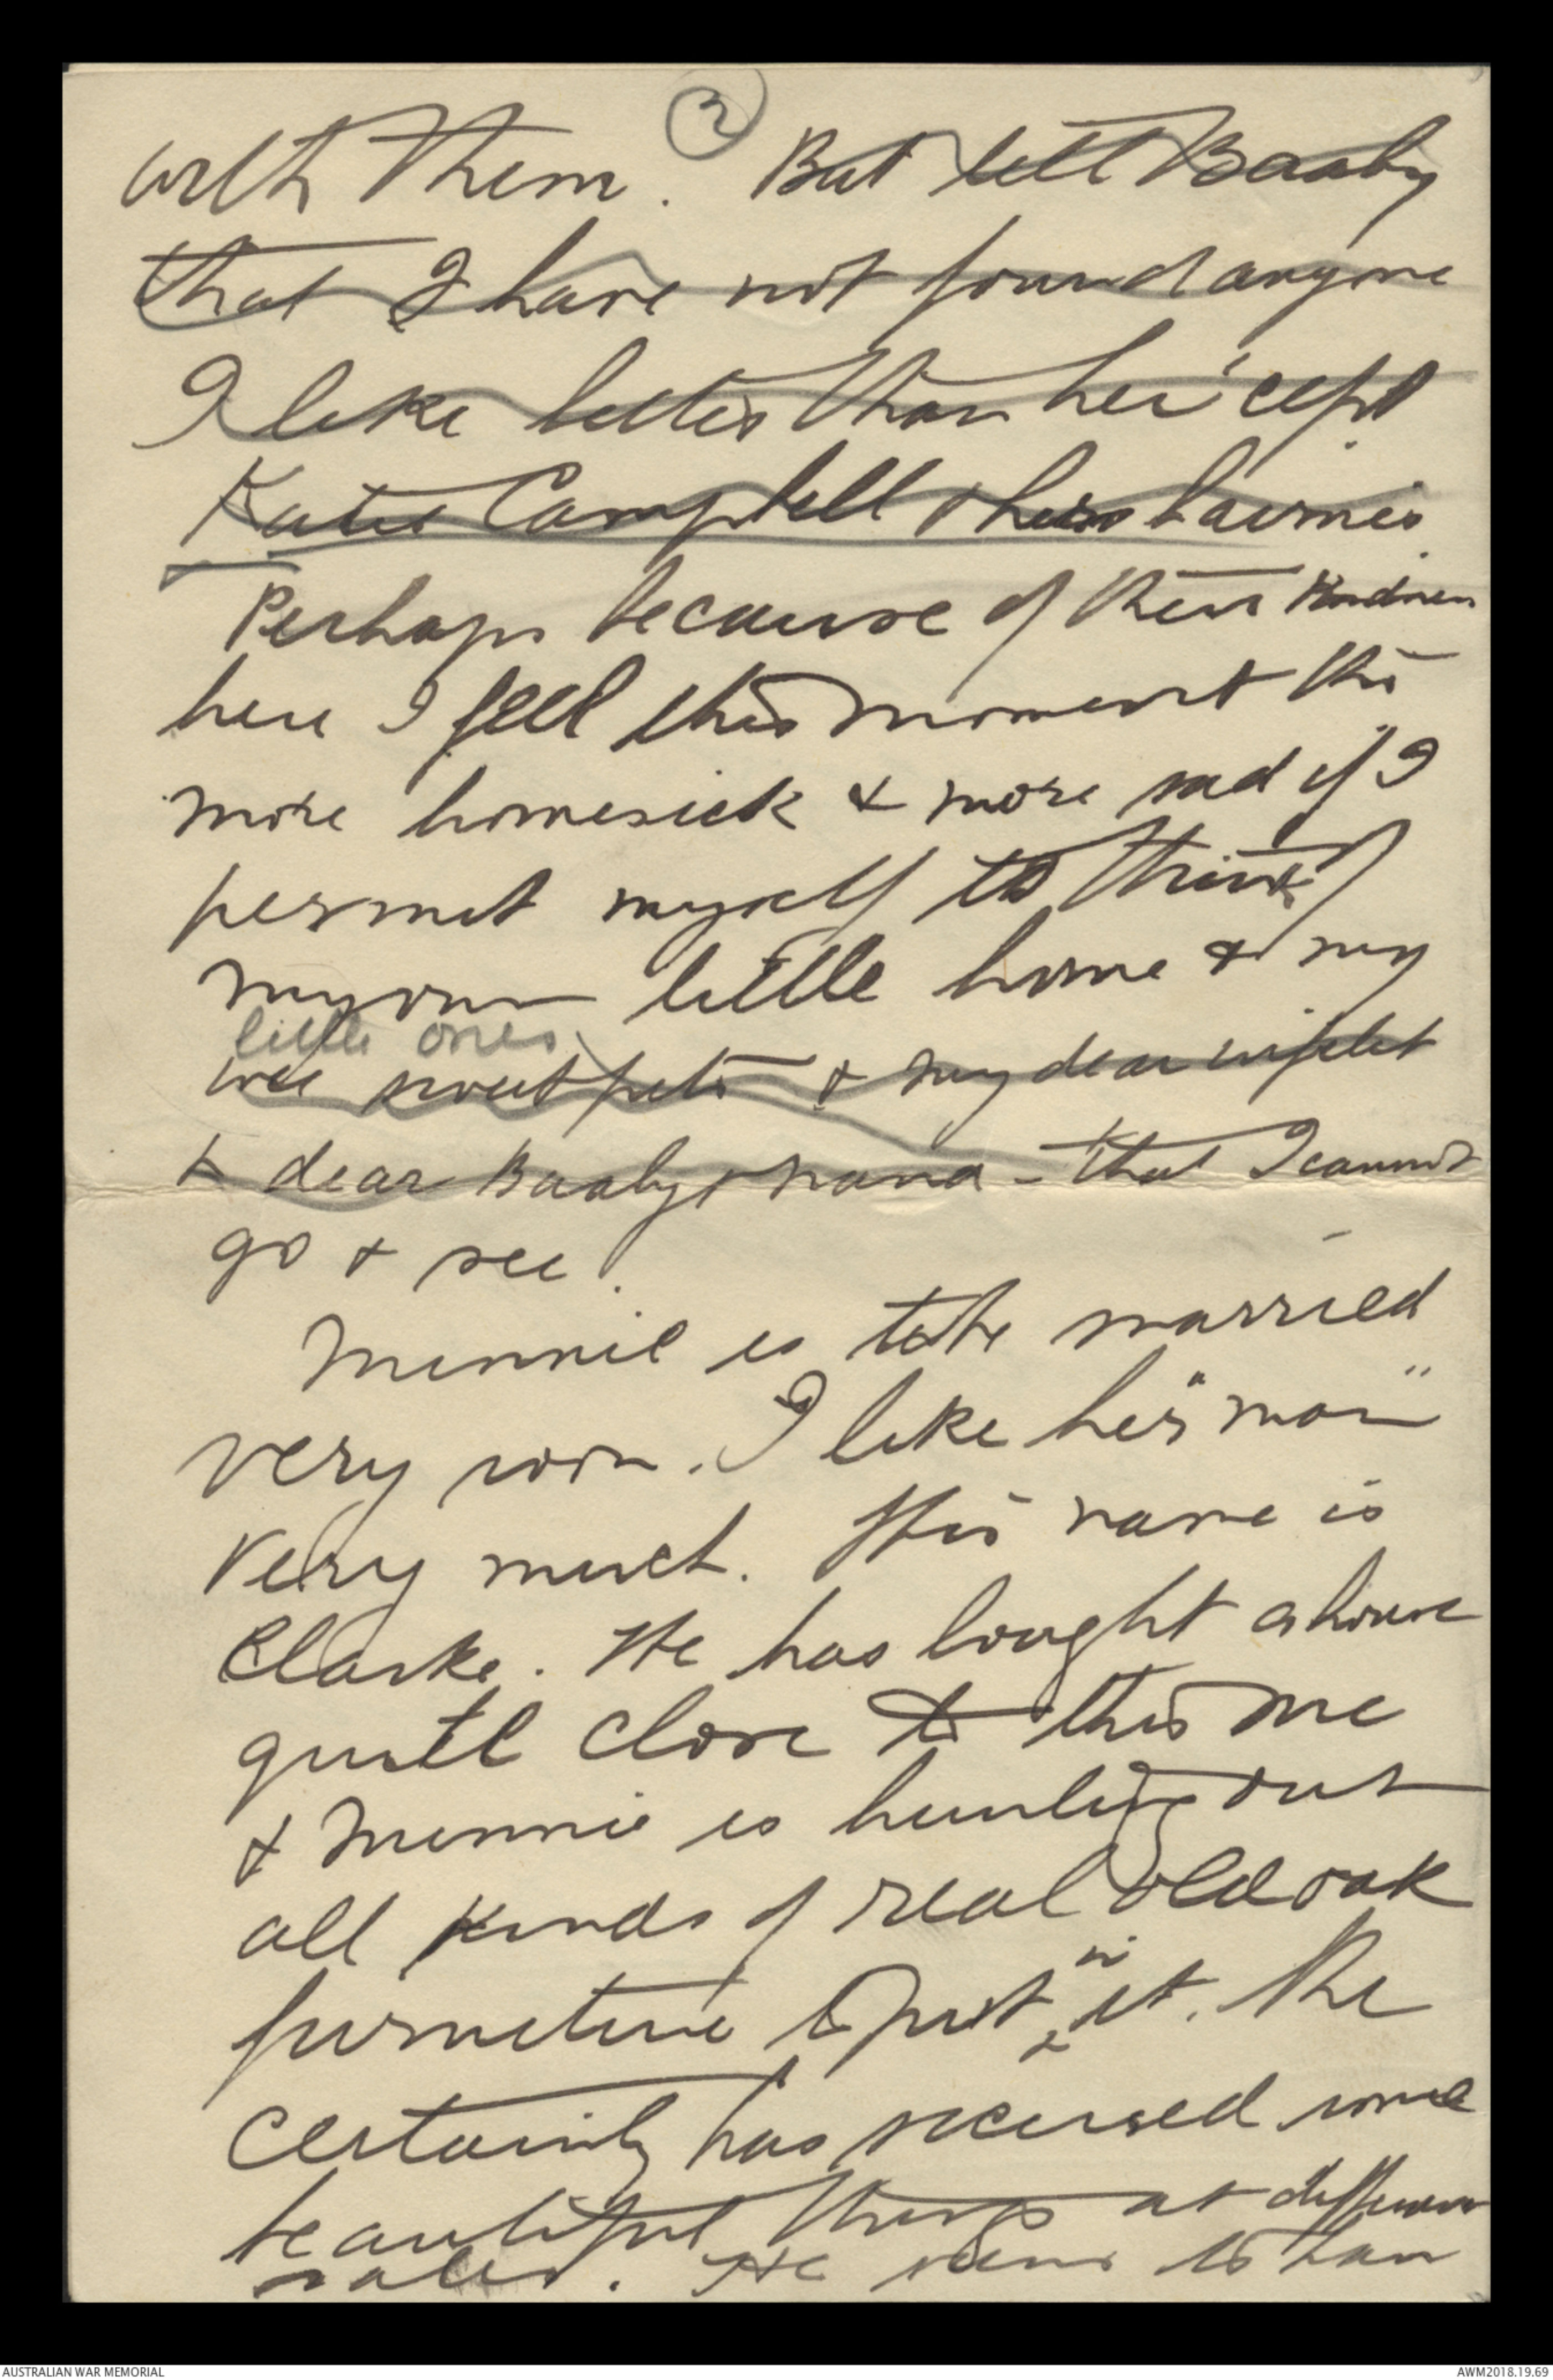 2
with them. But tell Baaby
that I have not found anyone
I like better than her 'cept
Katie Campbell & her bairnies
Perhaps because of their kindness
here I feel this moment the
more homesick & more sad if I
permit myself to think of
my own little home & my
little ones
wee sweet pets & my dear wifelet
& dear Baaby & Nana - that I cannot
go & see.
Minnie is to be married
very soon. I like her "man"
very much. His name is
Clarke. He has bought a house
quite close to this one
& Minnie is hunting out
all kinds of real old oak
furniture to put in it. She
certainly has secured some
beautiful things at different
sales. He seems to have
AUSTRALIAN WAR MEMORIAL
AWM2018.19.69